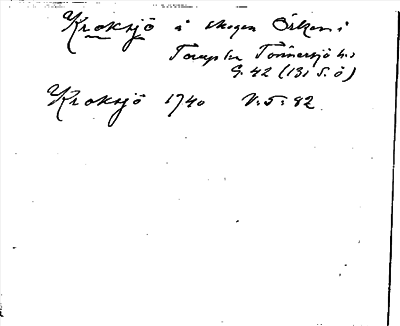 Kroksjö å skogen Örken i
Torup sn Tönnersjö hd
G. 42 (131 S. ö)
Kroksjö 1740 V. 5: 82